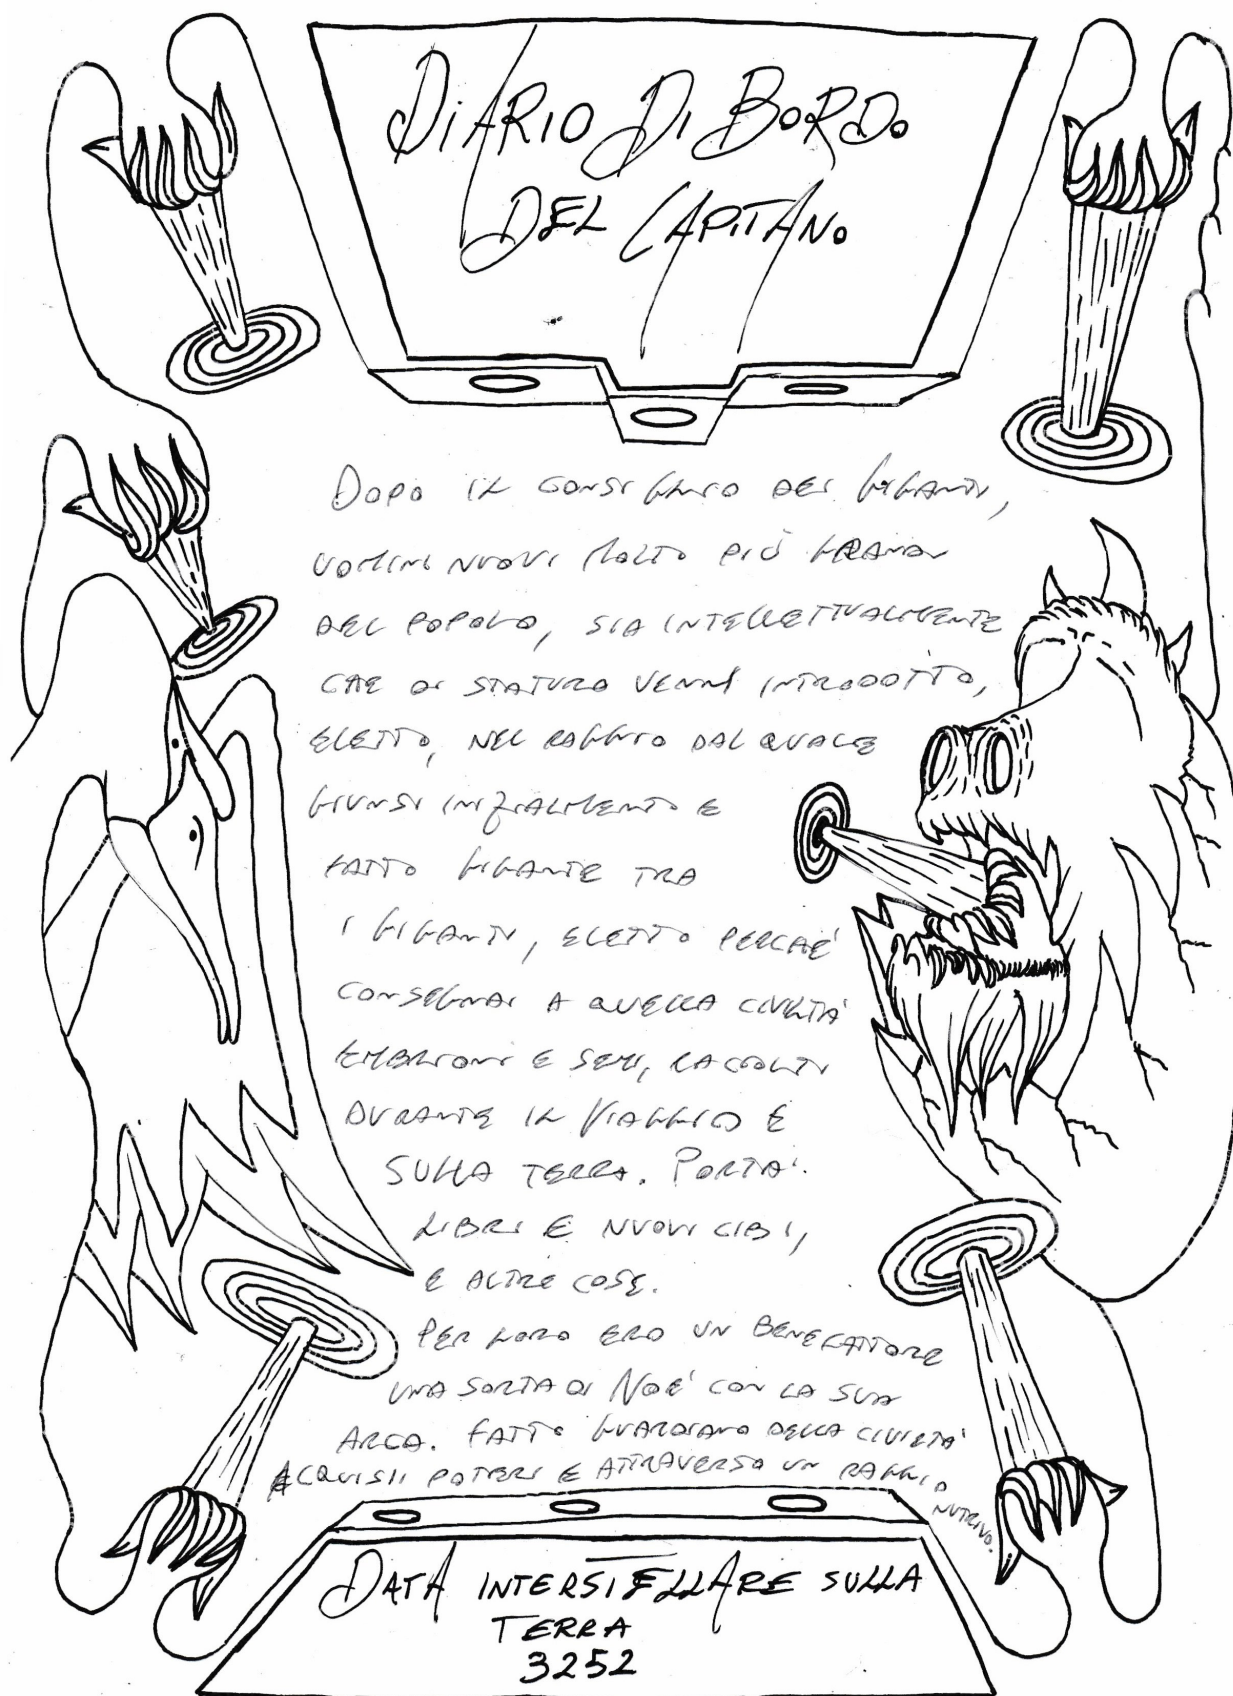 DIARIO DI BORDO
DEL CAPITANO
DOPO IL CONSIGLIO DEI GIGANTI,
UOMINI NUOVI MOLTO PIÙ GRANDI
DEL POPOLO, SIA INTELLETTUALMENTE
CHE DI STATURA VENNI INTRODOTTO,
ELETTO, NEL RAGGIO DAL QUALE
GIUNSI INIZIALMENTE E
FATTO GIGANTE TRA
I GIGANTI, ELETTO PERCHÈ
CONSEGNAI A QUELLA CIVILTÀ
EMBRIONI E SEMI, RACCOLTI
DURANTE IL VIAGGIO E
SULLA TERRA. PORTAI
LIBRI E NUOVI CIBI,
E ALTRE COSE.
PER LORO ERO UN BENEFATTORE
UNA SORTA DI NOÈ CON LA SUA
ARCA. FATTO GUARDIANO DELLA CIVILTÀ
ACQUISII POTERI E ATTRAVERSO UN RAGGIO
NUTRIVO.
DATA INTERSTELLARE SULLA
TERRA
3252